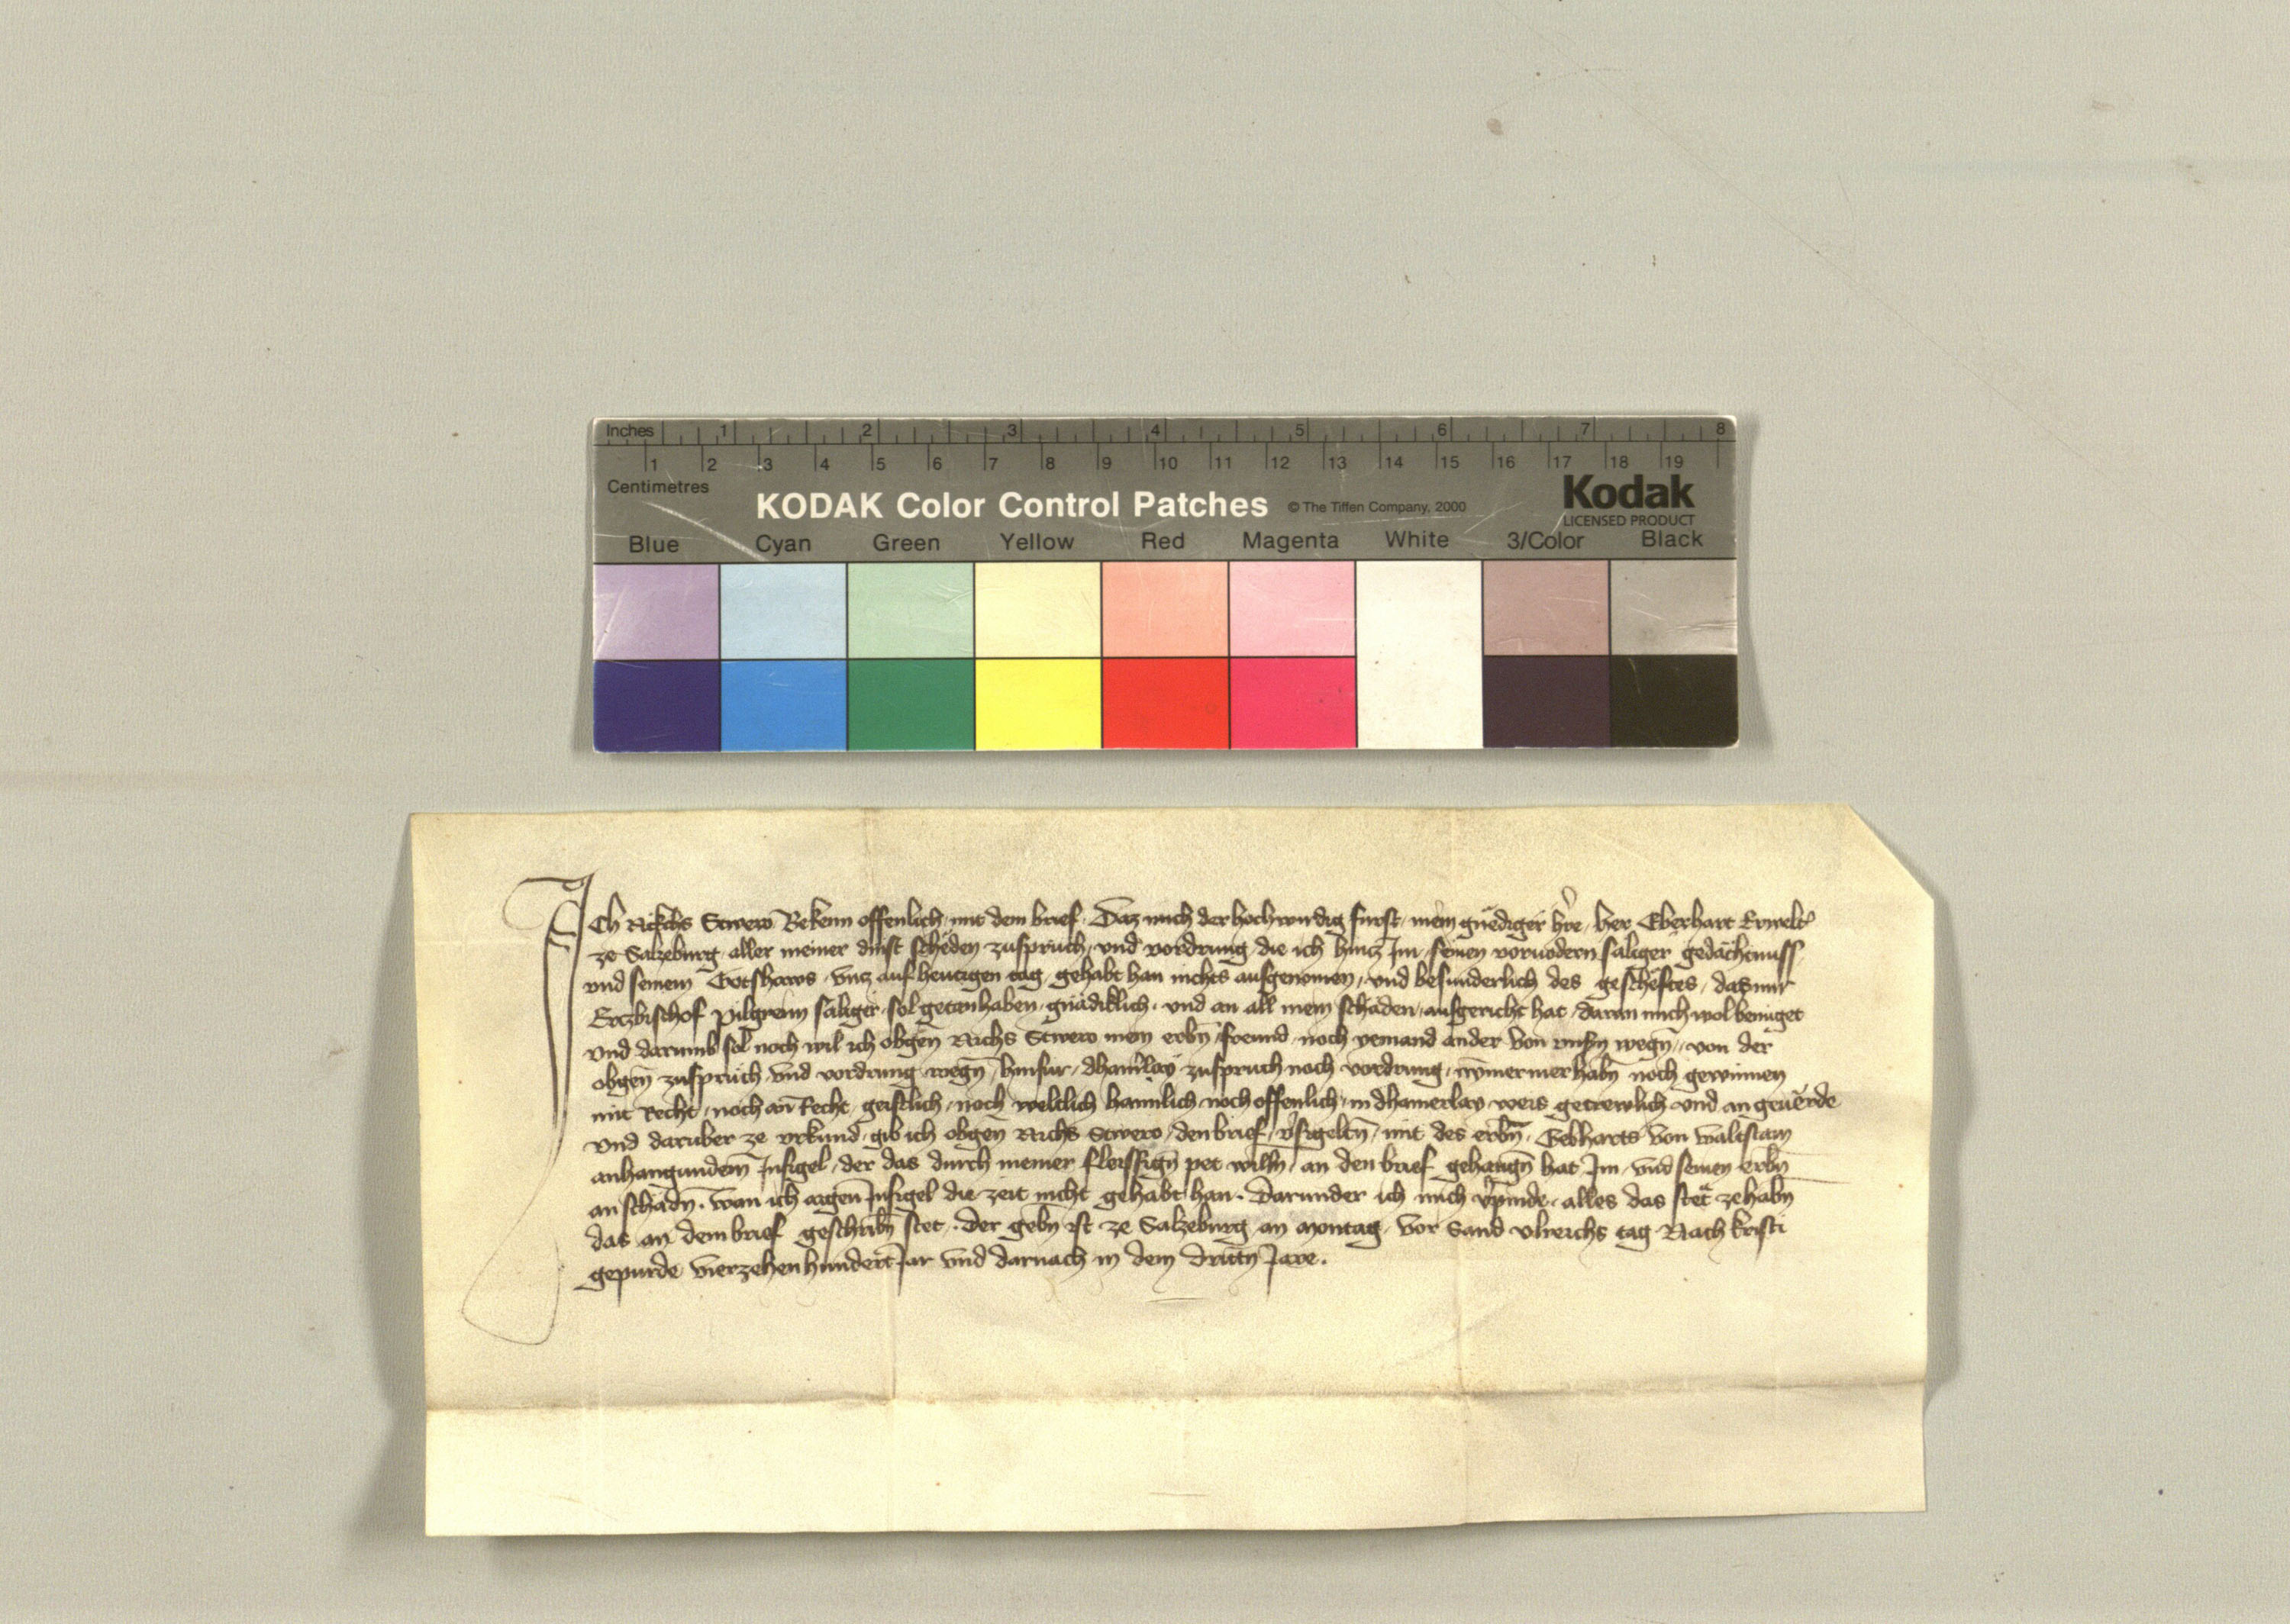 Inches 1 2 3 4 5 6 7 8
1 2 3 4 5 6 7 8 9 10 11 12 13 14 15 16 17 18 19
Centimetres
KODAK Color Control Patches © The Tiffen Company, 2000 Kodak
LICENSED PRODUCT
Blue Cyan Green Yellow Red Magenta White 3/Color Black
Ich Bekenn offenlich mit dem brief Daz mich der hochwirdig furst mein gnediger her Eberhart Erwelt
ze Salzeburg aller meiner dinst scheden zuspruch vnd vordrung die ich hincz Im seinen voruodern saliger gedachtnuss
vnd seinem Gotshaws vncz auf heutigen tag gehabt han nichts ausgenomen vnd besunderlich des gescheftes das mir
Erczbischof Pilgreim saliger sol getan haben gnadiklich vnd an all mein schaden ausgericht hat daran mich wol benuget
vnd darumb sol noch wil ich obgen mein erbn freund noch yemand ander von wegn von der
obgen zuspruch vnd vordrung wegn hinfur zuspruch noch vordrung nymermer habn noch gewinnen
mit Recht noch an Recht geistlich noch weltlich haimlich noch offenlich in dhainerlay weis getrewlich vnd an geuerde
vnd daruber ze vrkund gib ich obgen den brief vsigeltn mit des erbn Gebharts von
anhangundem Insigel der das durch meiner fleissign pet willn an den brief gehangn hat Im vnd seinen erbn
an schadn wan ich aigen Insigel die zeit nicht gehabt han. Darunder ich mich vpinde alles das stet ze habn
das an dem brief geschribn stet. Der gebn ist ze Salzeburg an Montag vor Sand Vlreichs tag Nach kristi
gepurde vierzehenhundert Jar vnd darnach in dem drittn Jare.